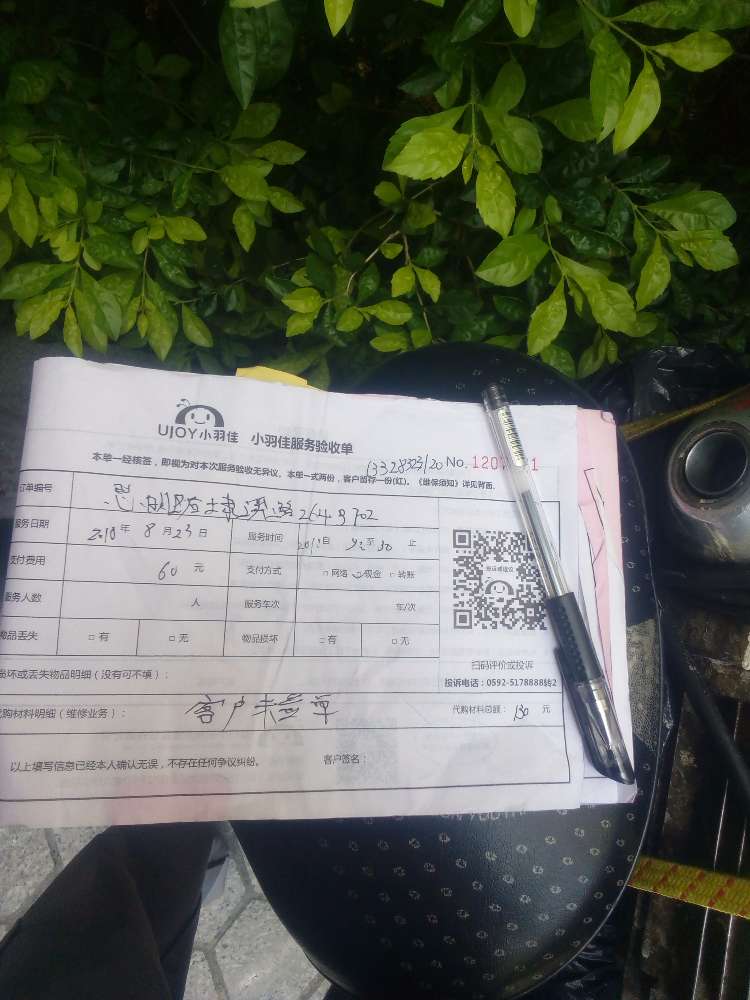 UJOY小羽佳 小羽佳服务验收单
13328323120 No. 120
本单一经核签，即视为对本次服务验收无异议。本单一式两份，客户留存一份(红)。《维保须知》详见背面
订单编号
服务日期 2018年 8月23日 服务时间 自 至 30 止
支付费用 60 元 支付方式 □网络 ☑现金 □转账
服务人数 人 服务车次 车/次
物品丢失 □有 □无 物品损坏 □有 □无
扫码评价或投诉
投诉电话：0592-5178888转2
损坏或丢失物品明细（没有可不填）：
代购材料明细（维修业务）： 客户未签单 代购材料总额： 130 元
以上填写信息已经本人确认无误，不存在任何争议纠纷。 客户签名：